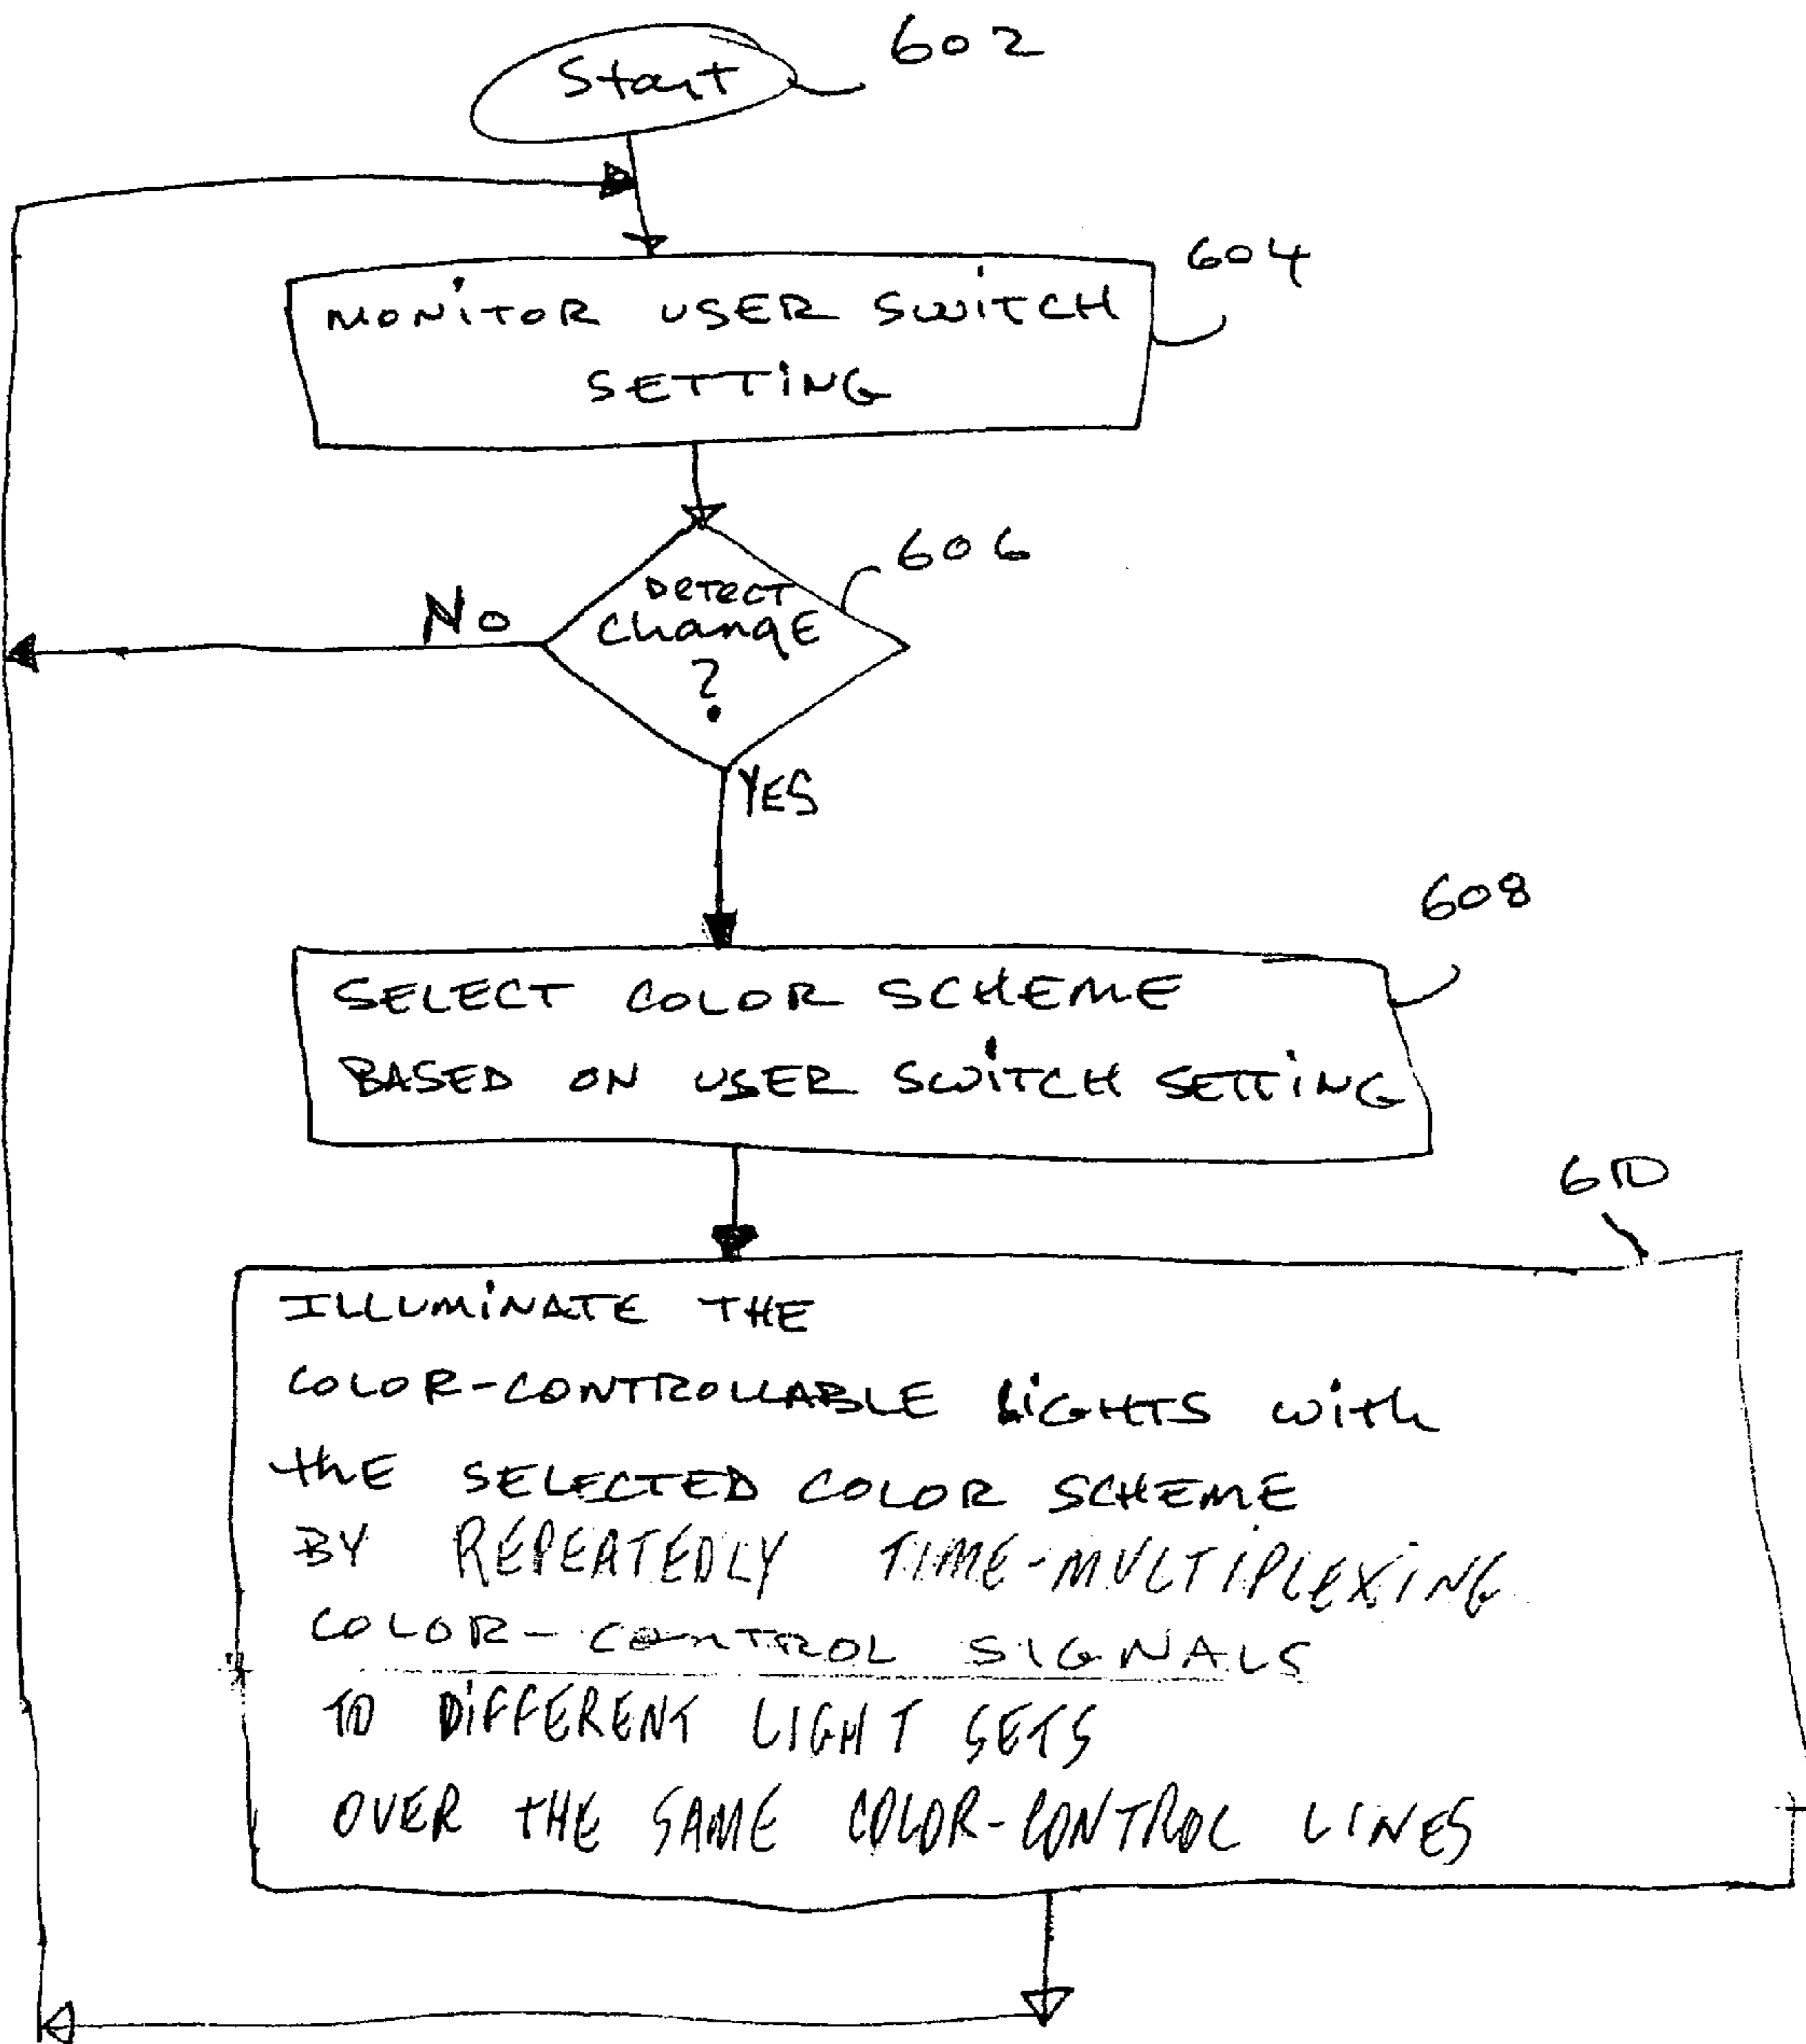 Start
602
MONITOR USER SWITCH
SETTING
604
DETECT
ChangE
?
606
No
YES
608
SELECT COLOR SCHEME
BASED ON USER SWITCH SETTING
610
ILLUMINATE THE
COLOR-CONTROLLABLE LIGHTS with
thE SELECTED COLOR SCHEME
BY REPEATEDLY TIME-MULTIPLEXING
COLOR-CONTROL SIGNALS
TO DIFFERENT LIGHT SETS
OVER THE SAME COLOR-CONTROL LINES